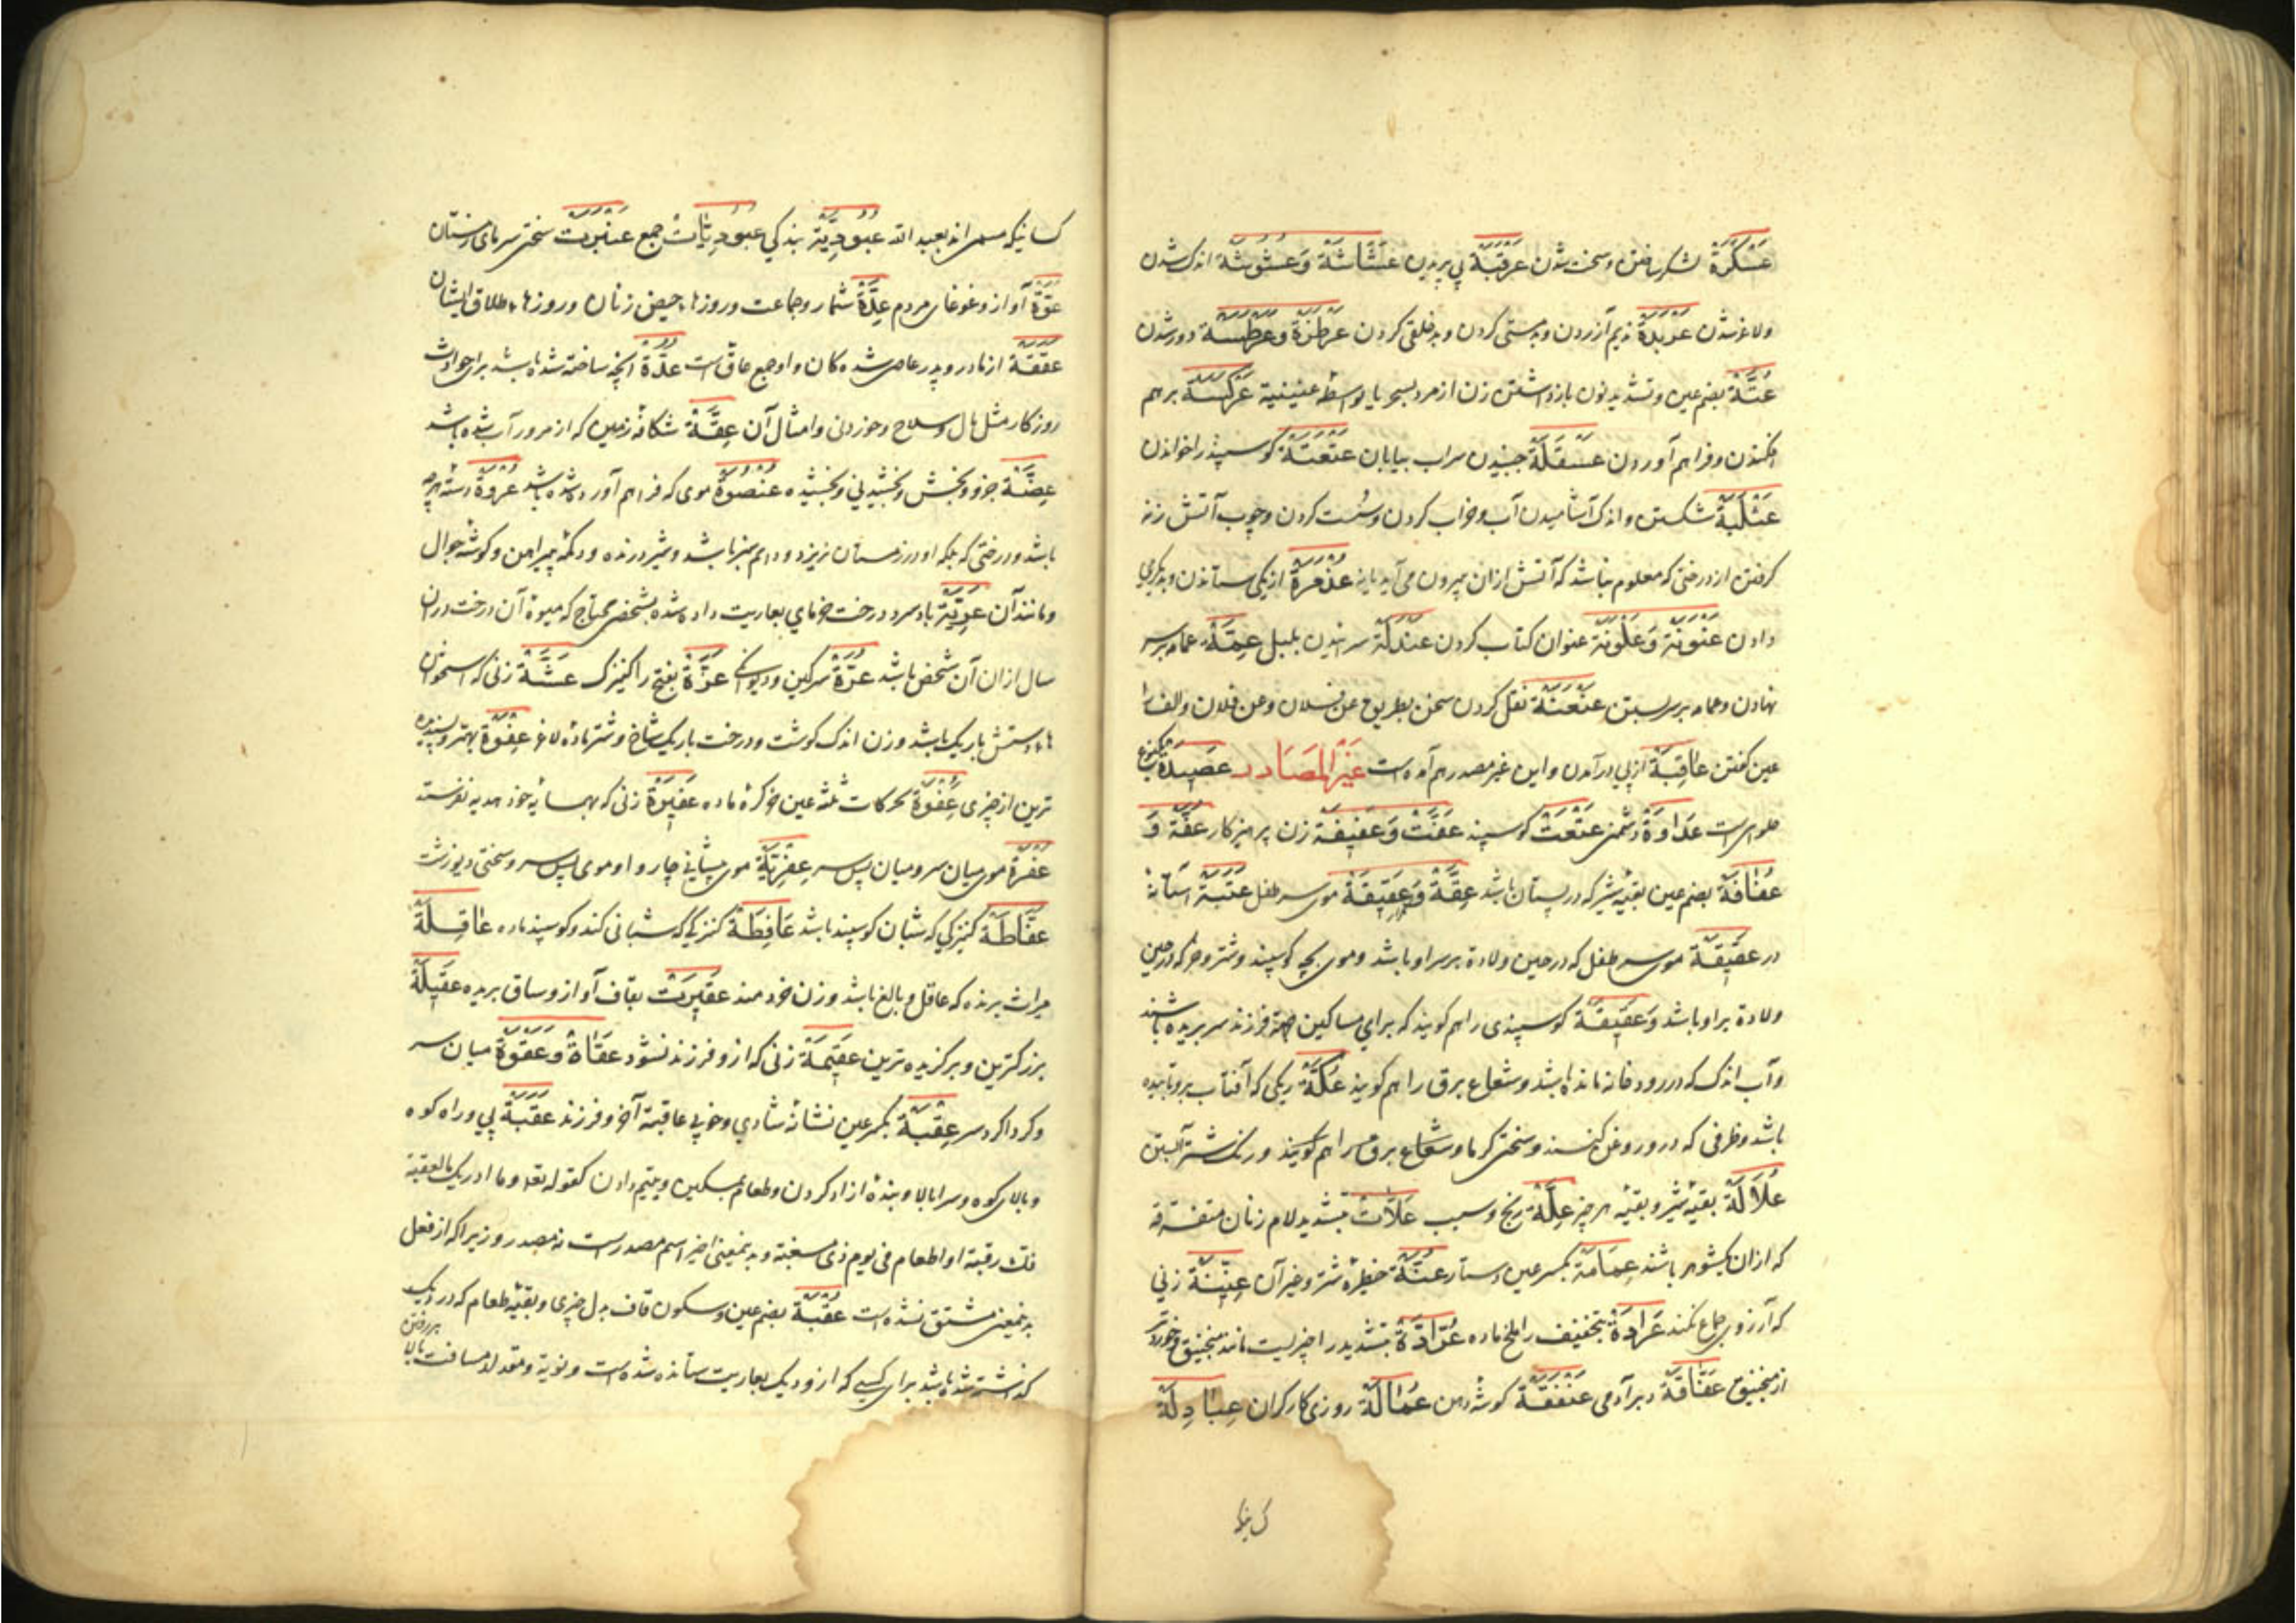 عَسْكَرَةٌ لشکر ساختن و سخت شدن عَرْقَبَةٌ پی بریدن عَشَاشَةٌ وَعُشُوشَةٌ اندک شدن
ولاغر شدن عَرْبَدَةٌ ندیم آزردن و بدمستی کردن و بدخلقی کردن عَرْطَزَةٌ وعَرْطَسَةٌ دور شدن
عُنَّةٌ بضم عین و تشدید نون بازداشتن زن از مرد بسحر یا بواسطهٔ عنینیة عَرْكَسَةٌ برهم
افکندن و فراهم آوردن عَسْقَلَةٌ جنبیدن سراب بیابان عَتْعَتَةٌ کوسپند را خواندن
عَثْلَبَةٌ شکستن و اندک آشامیدن آب و خراب کردن و سست کردن و چوب آتش زنه
کرفتن از درختی که معلوم نباشد که آتش ازان بیرون می آید یا نه از یکی ستاندن و بدیکری
دادن عَنْوَنَةٌ وَعَلْوَنَةٌ عنوان کتاب کردن عَنْدَلَةٌ سراییدن بلبل عِمَّةٌ عمامه برسر
نهادن و عمامه بر سر بستن عَنْعَنَةٌ نقل کردن سخن بطریق عن فلان وعن فلان و الف را
عین کفتن عَاقِبَةٌ از پی درآمدن و این غیر مصدر هم آمده است غَيْرُ المَصَادِر عَصِيدَةٌ یکنوع
حلوا است عَدَاوَةٌ دشمنی عَتْعَتْ کوسپند عَفَّتْ وَعَفِيفَة زن پرهیزکار عفّة وَ
عُفَافَةٌ بضم عین بقیه شیر که در پستان باشد عِقَّةٌ وَعَقِيقَةٌ موی سر طفل عَتَبَةٌ آستانهٔ
در عَقِيقَةٌ موی سر طفل که در حین ولادة بر سر او باشد و موی بچه کوسپند و شتر و خر که در حین
ولادة بر او باشد وَعَقِيقَةٌ کوسپندی را هم کویند که برای مساکین جهة فرزند سر بریده باشند
و آب اندک که در رودخانه مانده باشد و شعاع برق را هم کویند عُكَّةٌ ریکی که آفتاب برو تابیده
باشد و ظرفی که در و روغن کنند و سختی کرما و شعاع برق را هم کویند و رنک شتر آبستن
عُلَالَةٌ بقیه شیر و بقیه هر چیز عِلَّةٌ رنج و سبب عَلَّاتْ بتشدید لام زنان متفرقه
که ازان یکشوهر باشند عِمَامَةٌ بکسر عین دستار عُنَّةٌ حظیره شتر و غیر آن عِنِّينَةٌ زنی
که آرزوی جماع نکند عَرَادَةٌ بتخفیف را ملخ ماده عَرَّادَةٌ بتشدید را چیزیست مانند منجنیق و خوردتر
از منجنیق عَفَّاقَةٌ دبر آدمی عَنْفَقَةٌ کوشهٔ دهن عُمَالَةٌ روزی کارکران عِبَادِلَةٌ
کسانیکه مسمی اند بعبد الله عُبُودِيَّةٌ بندکی عُبُودِيَّاتْ جمع عَنْبَرَتْ سختی سرمای زمستان
عَوَّةٌ آواز و غوغای مردم عِدَّةٌ شمار و جماعت و روزها، حیض زنان و روزها، طلاق ایشان
عَقَقَةٌ از مادر و پدر عاصی شده کان و او جمع عاق است عُدَّةٌ آنچه ساخته شده باشد برای حوادث
روزکار مثل مال و سلاح و خوردنی و امثال آن عِقَّةٌ شکافهٔ زمین که از مرور آب شده باشد
عِضَةٌ جزو و بخش و بخشیدنی و بخشیده عُنْصُوَةٌ موی که فراهم آورده شده باشد عُرْوَةٌ دستهٔ هرچه
باشد و درختی که برک او در زمستان نریزد و دایم سبز باشد و شیر درنده و دکمهٔ پیراهن و کوشهٔ جوال
و مانند آن عَرِيَّةٌ باد سرد و درخت خرمای بعاریت داده شده بشخص محتاج که میوهٔ آن درخت دران
سال ازان آن شخص باشد عُرَّةٌ سرکین و دیوانکی عَزَّةٌ بفتح را کنیزک عَشَّةٌ زنی که استخوان
ها، دستش باریک باشد و زن اندک کوشت و درخت باریک شاخ و شتر مادهٔ لاغر عِفْوَةٌ بهتر و پسندیده
ترین از چیزی عُِفْوَةٌ بحرکات ثلثه عین خرکرهٔ ماده عَفِيرَةٌ زنی که بهمسایهٔ خود هدیه نفرستد
عُفْرَةٌ موی میان سر و میان پس سر عِفْرِيَةٌ موی پیشانی چاروا و موی پس سر و سختی دیو زشت
عَفَّاطَةٌ کنیزکی که شبان کوسپند باشد عَافِطَةٌ کنیزکی که شبانی کند و کوسپند ماده عَاقِلَةٌ
میراث برنده که عاقل و بالغ باشد و زن خردمند عَقِيرَتْ بقاف آواز و ساق بریده عَقِيلَةٌ
بزرکترین و برکزیده ترین عَقِيمَةٌ زنی که ازو فرزند نشود عَقَاةٌ وعَقْوَةٌ میان سر
و کرداکرد سر عِقْبَةٌ بکسر عین نشانهٔ شادی و خوبی عاقبة آخر و فرزند عَقَبَةٌ پی و راه کوه
و بالای کوه و سرابالا و بندهٔ آزاد کردن و طعام بمسکین و یتیم دادن کقوله تعا وما ادریک ما العقبة
فک رقبة او اطعام فی یوم ذی مسغبة و بدینمعنی اخیر اسم مصدر است نه مصدر و زیرا که از فعل
بدینمعنی مشتق نشده است عُقْبَةٌ بضم عین و سکون قاف بدل چیزی و بقیهٔ طعام که در دیک
کذاشته شده باشد برای کسی که ازو دیک بعاریت ستانده شده است و نوبة و مقدار مسافت بالا
بررفتن